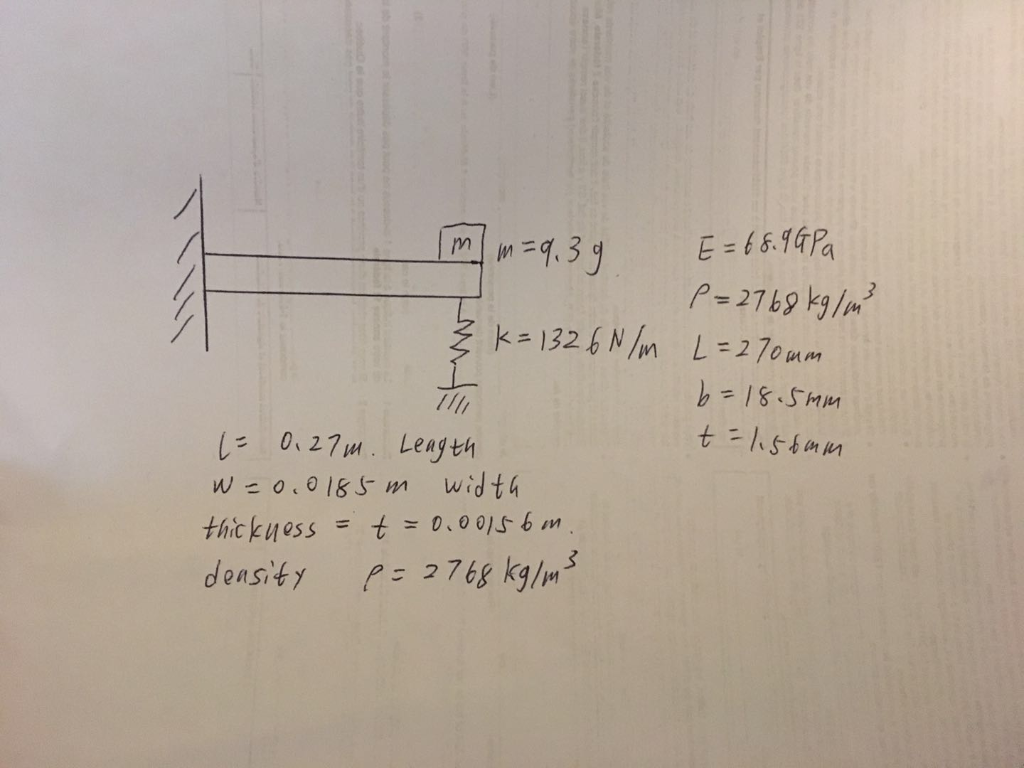 m
m = 9.3 g
k = 1326 N/m
E = 68.9 GPa
ρ = 2768 kg/m³
L = 270 mm
b = 18.5 mm
t = 1.56 mm
l = 0.27 m. Length
w = 0.0185 m width
thickness = t = 0.00156 m.
density ρ = 2768 kg/m³